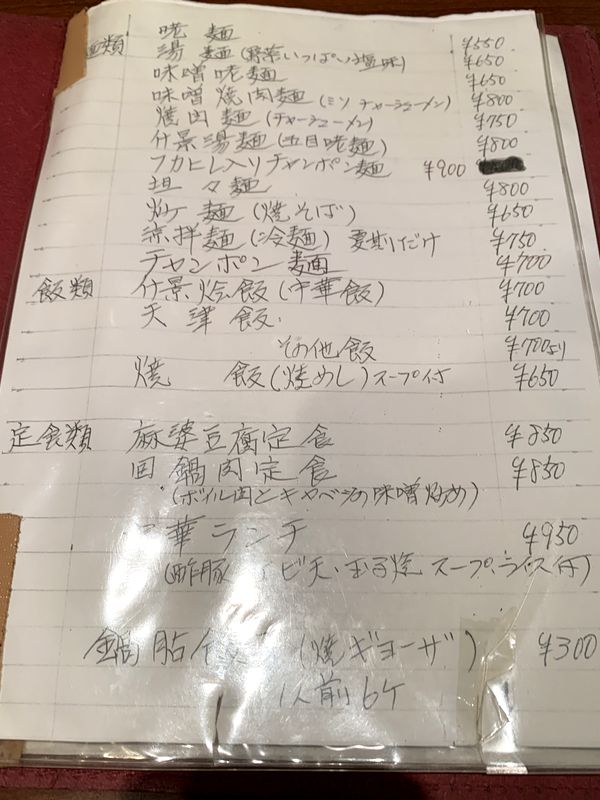 麺類 咾麺 ¥550
湯麺(野菜いっぱい塩味) ¥650
味噌咾麺 ¥650
味噌焼肉麺(ミソチャーシューメン) ¥800
焼肉麺(チャーシューメン) ¥750
什景湯麺(五目咾麺) ¥800
フカヒレ入リチャンポン麺 ¥900
坦々麺 ¥800
炒麺(焼そば) ¥650
涼拌麺(冷麺) 夏期だけ ¥750
チャンポン麺 ¥700
飯類 什景烩飯(中華飯) ¥700
天津飯 ¥700
その他飯 ¥700より
焼飯(焼めし)スープ付 ¥650
定食類 麻婆豆腐定食 ¥850
回鍋肉定食 ¥850
(ボイル肉とキャベツの味噌炒め)
華ランチ ¥950
(酢豚 ビ天、玉子焼 スープ、ライス付)
鍋貼 (焼ギョーザ) ¥300
1人前6ケ